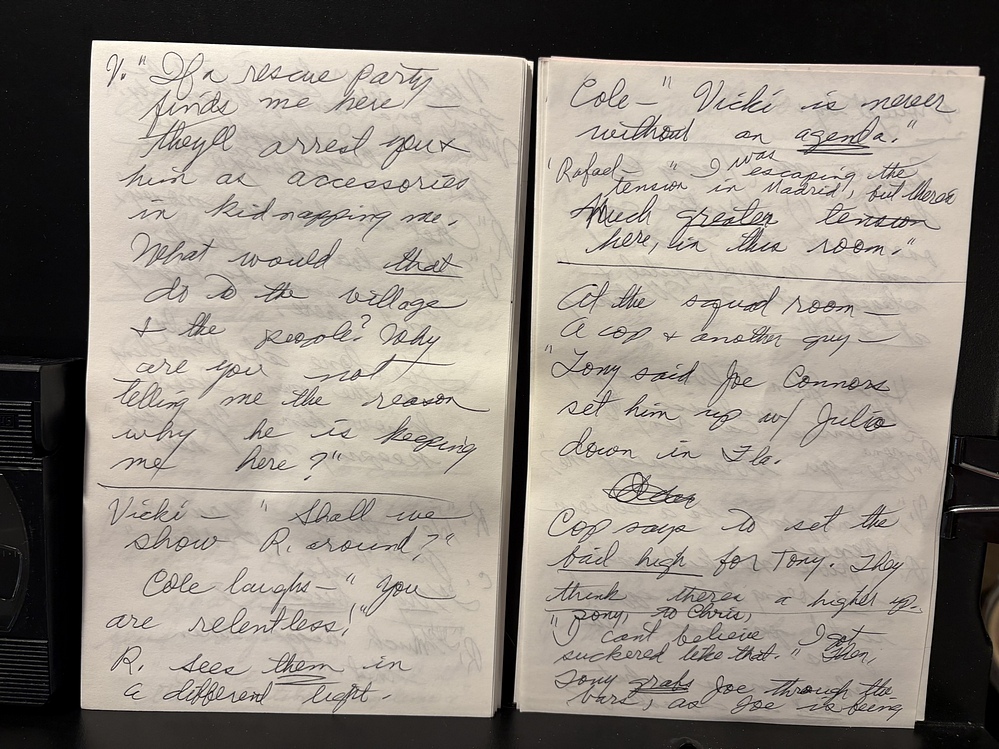 V. "If a rescue party
finds me here -
they'll arrest you &
him as accessories
in kidnapping me.
What would that
do to the village
& the people? Why
are you not
telling me the reason
why he is keeping
me here?"
Vicki - "Shall we
show R. around?"
Cole laughs - "You
are relentless!"
R. sees them in
a different light.
Cole - "Vicki is never
without an agenda."
"Rafael - "I was escaping the
tension in Madrid, but there's
Much greater tension
here, in this room."
At the squad room -
A cop & another guy -
"Tony said Joe Connors
set him up w/ Julio
down in Fla.
Cop says to set the
bail high for Tony. They
think there's a higher up.
Tony, to Chris,
"I can't believe I got
suckered like that." Then,
Tony grabs Joe through the
bars, as Joe is being